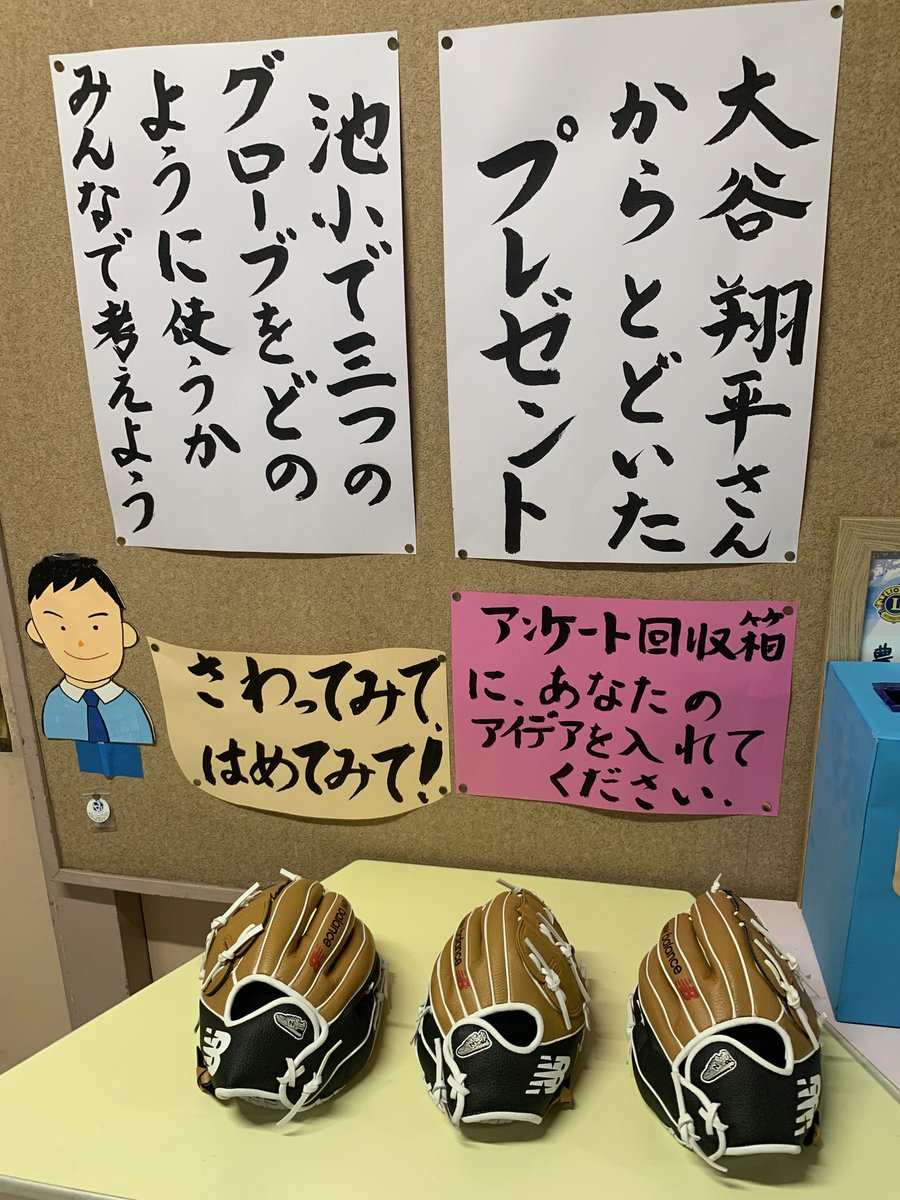 大谷翔平さん
からとどいた
プレゼント
池小で三つの
グローブをどの
ように使うか
みんなで考えよう
さわってみて、
はめてみて!
アンケート回収箱
に、あなたの
アイデアを入れて
ください.
new balance
new balance
new balance